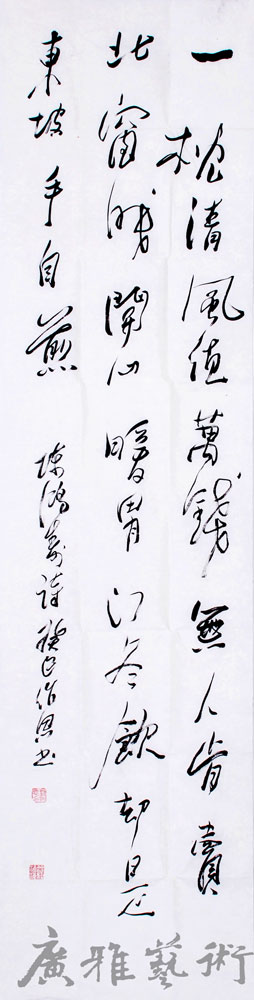 一枕清風值萬錢無人肯賣
北窗眠開心暖胃門冬飲知是
東坡手自煎
陳鴻壽詩癸巳作恩書
廣雅藝術